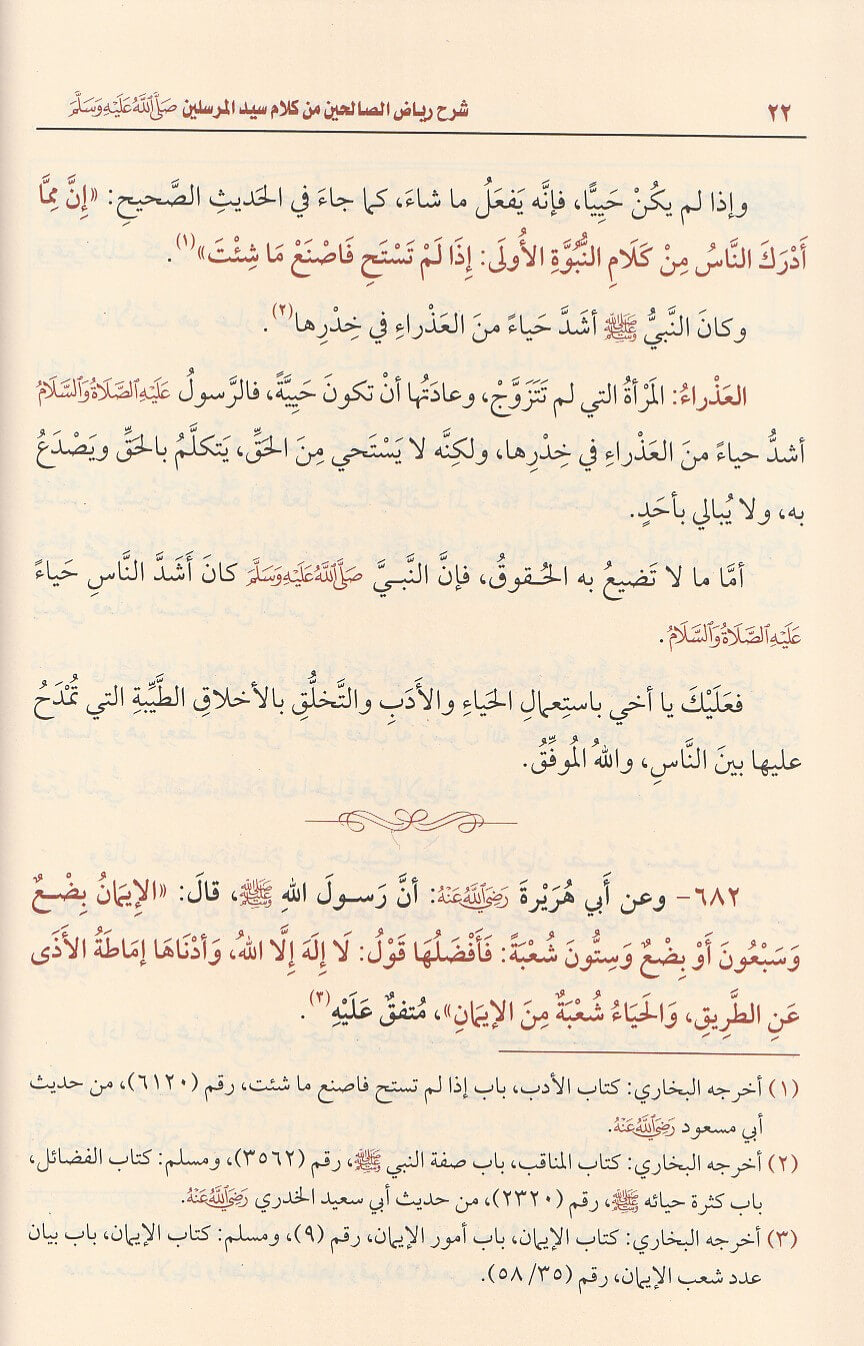 ٢٢ شرح رياض الصالحين من كلام سيد المرسلين صَلَّى اللَّهُ عَلَيْهِ وَسَلَّمَ
وإذا لم يكُنْ حَيِيًّا، فإنَّه يَفعَلُ ما شاءَ، كما جاءَ في الحَديثِ الصَّحيحِ: «إِنَّ مِمَّا
أَدْرَكَ النَّاسُ مِنْ كَلَامِ النُّبُوَّةِ الأُولَى: إِذَا لَمْ تَسْتَحِ فَاصْنَعْ مَا شِئْتَ»(١).
وكانَ النَّبيُّ ﷺ أشدَّ حَياءً منَ العَذْراءِ في خِدْرِها(٢).
العَذْراءُ: المَرْأةُ التي لم تَتَزَوَّجْ، وعادَتُها أنْ تكونَ حَيِيَّةً، فالرَّسولُ عَلَيْهِ الصَّلَاةُ وَالسَّلَامُ
أشدُّ حياءً منَ العَذْراءِ في خِدْرِها، ولكِنَّه لا يَسْتَحي مِنَ الحَقِّ، يَتكلَّمُ بالحَقِّ ويَصْدَعُ
به، ولا يُبالي بأحَدٍ.
أمَّا ما لا تَضيعُ به الحُقوقُ، فإنَّ النَّبيَّ صَلَّى اللَّهُ عَلَيْهِ وَسَلَّمَ كانَ أَشَدَّ النَّاسِ حَياءً
عَلَيْهِ الصَّلَاةُ وَالسَّلَامُ.
فعَلَيْكَ يا أخي باستِعمالِ الحَياءِ والأَدَبِ والتَّخلُّقِ بالأخلاقِ الطَّيِّبةِ التي تُمْدَحُ
عليها بينَ النَّاسِ، واللهُ المُوفِّقُ.
٦٨٢- وعن أَبي هُرَيْرةَ رَضِيَ اللَّهُ عَنْهُ: أنَّ رَسولَ اللهِ ﷺ، قالَ: «الإِيمَانُ بِضْعٌ
وَسَبْعُونَ أَوْ بِضْعٌ وَسِتُّونَ شُعْبَةً: فَأَفْضَلُهَا قَوْلُ: لَا إِلَهَ إِلَّا اللهُ، وَأدْنَاهَا إمَاطَةُ الأَذَى
عَنِ الطَّرِيقِ، وَالحَيَاءُ شُعْبَةٌ مِنَ الإيمَانِ»، مُتفقٌ عَلَيْهِ(٣).
(١) أخرجه البخاري: كتاب الأدب، باب إذا لم تستح فاصنع ما شئت، رقم (٦١٢٠)، من حديث
أبي مسعود رَضِيَ اللَّهُ عَنْهُ.
(٢) أخرجه البخاري: كتاب المناقب، باب صفة النبي ﷺ، رقم (٣٥٦٢)، ومسلم: كتاب الفضائل،
باب كثرة حيائه ﷺ، رقم (٢٣٢٠)، من حديث أبي سعيد الخدري رَضِيَ اللَّهُ عَنْهُ.
(٣) أخرجه البخاري: كتاب الإيمان، باب أمور الإيمان، رقم (٩)، ومسلم: كتاب الإيمان، باب بيان
عدد شعب الإيمان، رقم (٣٥/ ٥٨).